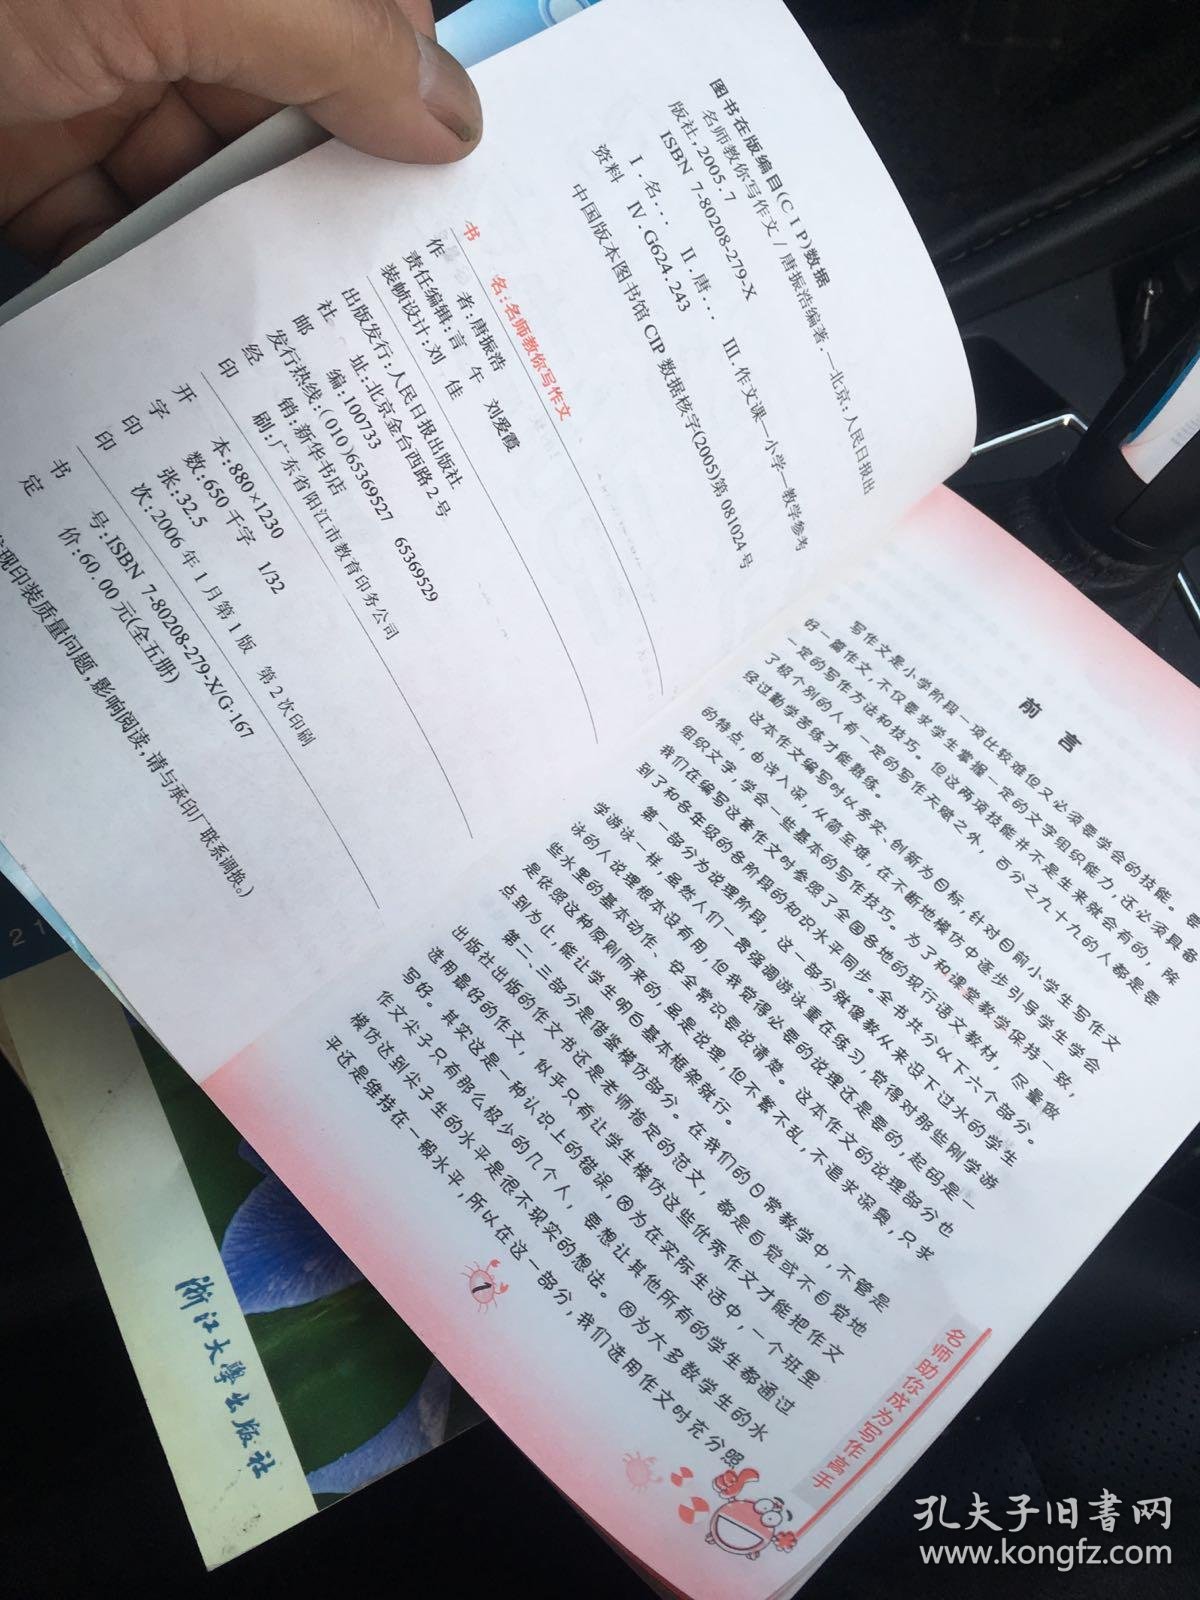 图书在版编目(CIP)数据
名师教你写作文/唐振浩编著.—北京:人民日报出
版社,2005.7
ISBN 7-80208-279-X
Ⅰ.名… Ⅱ.唐… Ⅲ.作文课—小学—教学参考
资料 Ⅳ.G624.243
中国版本图书馆 CIP 数据核字(2005)第 081024 号
书 名:名师教你写作文
作 者:唐振浩
责任编辑:言 午 刘爱霞
装帧设计:刘 佳
出版发行:人民日报出版社
社 址:北京金台西路2号
邮 编:100733
发行热线:(010)65369527 65369529
经 销:新华书店
印 刷:广东省阳江市教育印务公司
开 本:880×1230 1/32
字 数:650千字
印 张:32.5
印 次:2006年1月第1版 第2次印刷
书 号:ISBN 7-80208-279-X/G·167
定 价:60.00元(全五册)
发现印装质量问题,影响阅读,请与承印厂联系调换。)
前言
写作文是小学阶段一项比较难但又必须要学会的技能。要
好一篇作文,不仅要求学生掌握一定的文字组织能力,还必须具备
一定的写作方法和技巧。但这两项技能并不是生来就会有的,除
了极个别的人有一定的写作天赋之外,百分之九十九的人都是要
经过勤学苦练才能熟练。
这本作文编写时以务实、创新为目标,针对目前小学生写作文
的特点,由浅入深,从简至难,在不断地模仿中逐步引导学生学会
组织文字,学会一些基本的写作技巧。为了和课堂教学保持一致,
我们在编写这套作文时参照了全国各地的现行语文教材,尽量做
到了和各年级的各阶段的知识水平同步。全书共分以下六个部分。
第一部分为说理阶段,这一部分就像教从来没下过水的学生
学游泳一样,虽然人们一贯强调游泳重在练习,觉得对那些刚学游
泳的人说理根本没有用,但我觉得必要的说理还是要的,起码是一
些水里的基本动作、安全常识要说清楚。这本作文的说理部分也
是依照这种原则而来的,虽是说理,但不繁不乱,不追求深奥,只求
点到为止,能让学生明白基本框架就行。
第二、三部分是借鉴模仿部分。在我们的日常教学中,不管是
出版社出版的作文书还是老师指定的范文,都是自觉或不自觉地
选用最好的作文,似乎只有让学生模仿这些优秀作文才能把作文
写好。其实这是一种认识上的错误,因为在实际生活中,一个班里
作文尖子只有那么极少的几个人,要想让其他所有的学生都通过
模仿达到尖子生的水平是很不现实的想法。因为大多数学生的水
平还是维持在一般水平,所以在这一部分,我们选用作文时充分照
1
名师助你成为写作高手
浙江大学出版社
孔夫子旧书网
www.kongfz.com